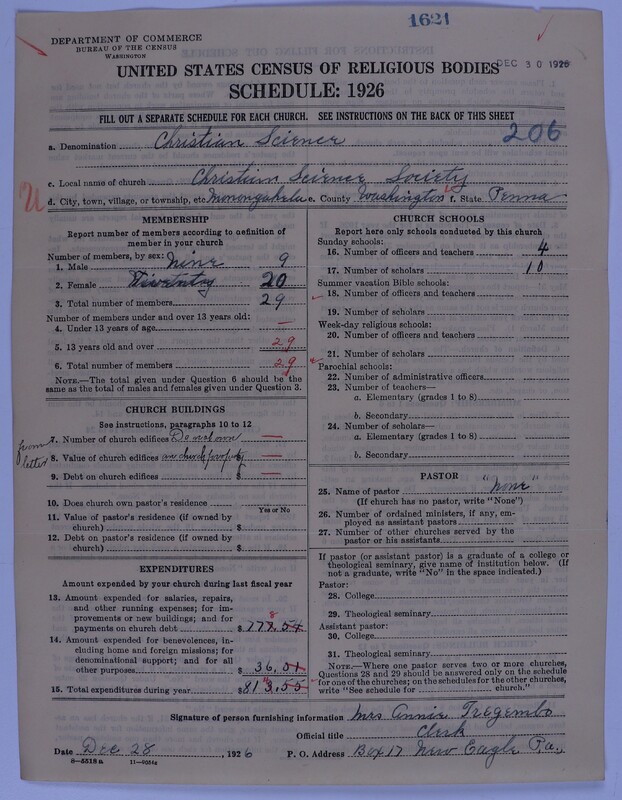 1621
DEPARTMENT OF COMMERCE
BUREAU OF THE CENSUS
WASHINGTON
DEC 30 1926
UNITED STATES CENSUS OF RELIGIOUS BODIES
SCHEDULE: 1926
FILL OUT A SEPARATE SCHEDULE FOR EACH CHURCH. SEE INSTRUCTIONS ON THE BACK OF THIS SHEET
206
a. Denomination Christian Science
c. Local name of church Christian Science Society
d. City, town, village, or township, etc. Monongahela e. County Washington f. State Penna
MEMBERSHIP
Report number of members according to definition of
member in your church
Number of members, by sex:
1. Male Nine 9
2. Female Twenty 20
3. Total number of members 29
Number of members under and over 13 years old:
4. Under 13 years of age —
5. 13 years old and over 29
6. Total number of members 29
NOTE.—The total given under Question 6 should be the
same as the total of males and females given under Question 3.
CHURCH BUILDINGS
See instructions, paragraphs 10 to 12
from
letter
7. Number of church edifices Do not own —
8. Value of church edifices any church property $ —
9. Debt on church edifices $ —
10. Does church own pastor's residence
Yes or No
11. Value of pastor's residence (if owned by
church) $
12. Debt on pastor's residence (if owned by
church) $
EXPENDITURES
Amount expended by your church during last fiscal year
13. Amount expended for salaries, repairs,
and other running expenses; for im-
provements or new buildings; and for
payments on church debt $ 777.54
8
14. Amount expended for benevolences, in-
cluding home and foreign missions; for
denominational support; and for all
other purposes $ 36.01
15. Total expenditures during year $ 813.55
CHURCH SCHOOLS
Report here only schools conducted by this church
Sunday schools:
16. Number of officers and teachers 4
17. Number of scholars 10
Summer vacation Bible schools:
18. Number of officers and teachers
19. Number of scholars
Week-day religious schools:
20. Number of officers and teachers
21. Number of scholars
Parochial schools:
22. Number of administrative officers
23. Number of teachers—
a. Elementary (grades 1 to 8)
b. Secondary
24. Number of scholars—
a. Elementary (grades 1 to 8)
b. Secondary
PASTOR
25. Name of pastor "None"
(If church has no pastor, write "None")
26. Number of ordained ministers, if any, em-
ployed as assistant pastors
27. Number of other churches served by the
pastor or his assistants
If pastor (or assistant pastor) is a graduate of a college or
theological seminary, give name of institution below. (If
not a graduate, write "No" in the space indicated.)
Pastor:
28. College
29. Theological seminary
Assistant pastor:
30. College
31. Theological seminary
NOTE.—Where one pastor serves two or more churches,
Questions 28 and 29 should be answered only on the schedule
for one of the churches; on the schedules for the other churches,
write "See schedule for church."
Signature of person furnishing information Mrs Annie Tregembo
Official title Clerk
Date Dec 28, 1926 P. O. Address Box 17 New Eagle, Pa.,
8—5518 a 11—9034a